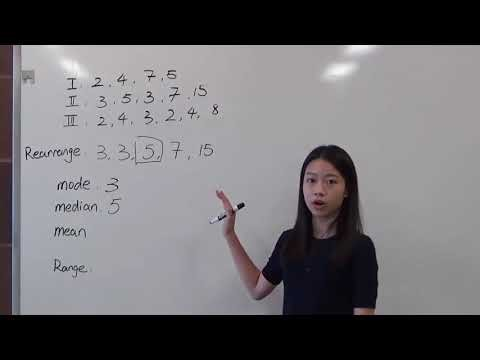 I 2, 4, 7, 5
II 3, 5, 3, 7, 15
III 2, 4, 3, 2, 4, 8
Rearrange. 3, 3, 5, 7, 15
mode. 3
median. 5
mean
Range.